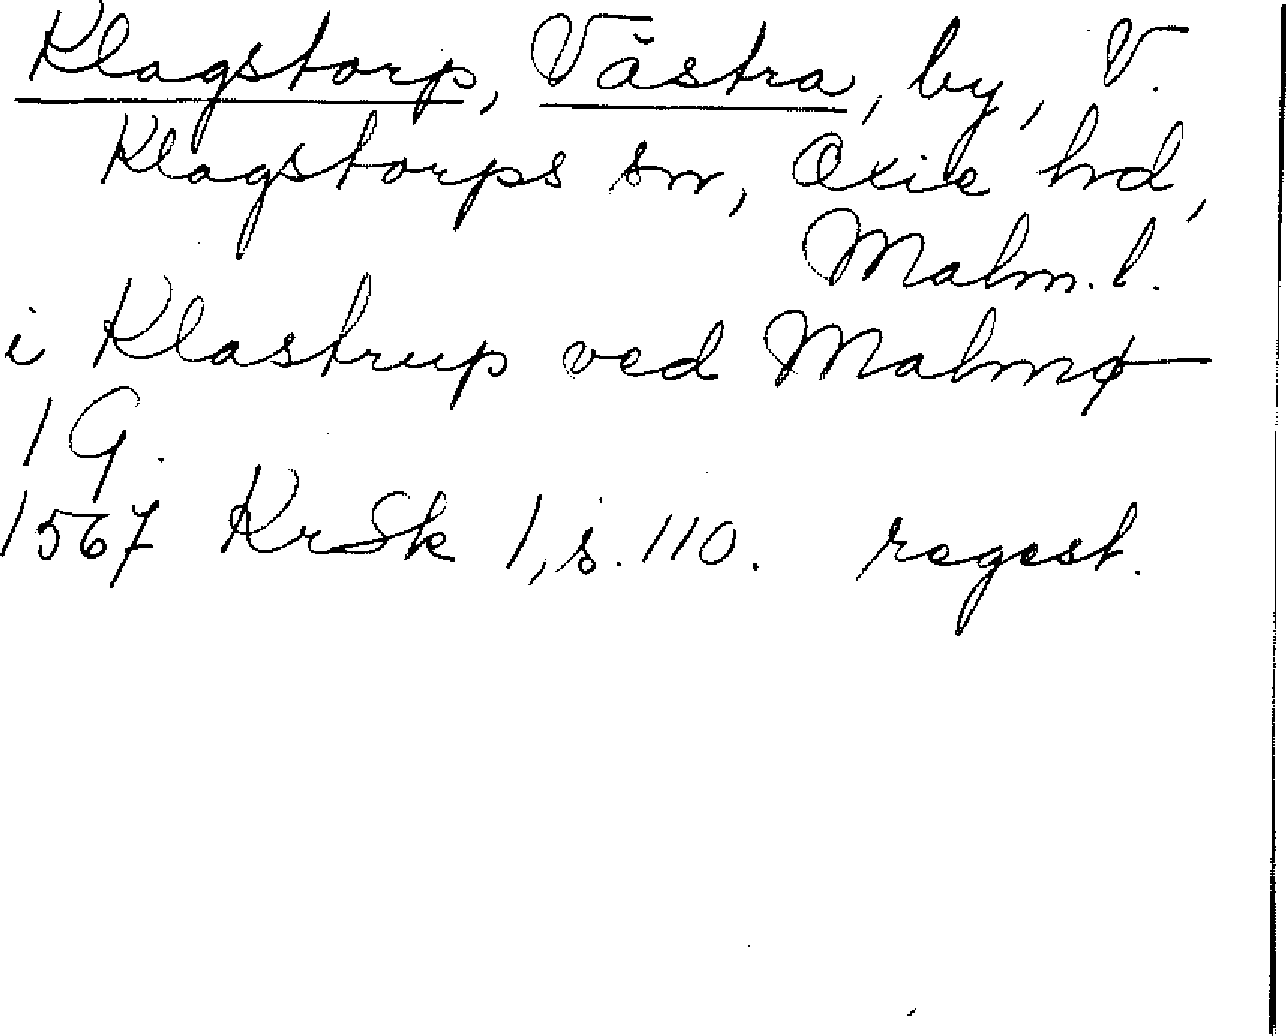 Klagstorp, Västra, by, V.
Klagstorps sn, Oxie hd,
Malm. l.
i Klastrup ved Malmø
1 G.
1567 KrSk 1, s. 110. regest.